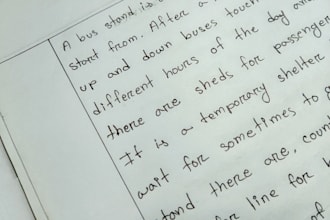 A bus stand is
start from. After a
up and down buses touch
different hours of the day and
there are sheds for passenger
It is a temporary shelter
wait for sometimes to
stand there are, coun
for line for
of